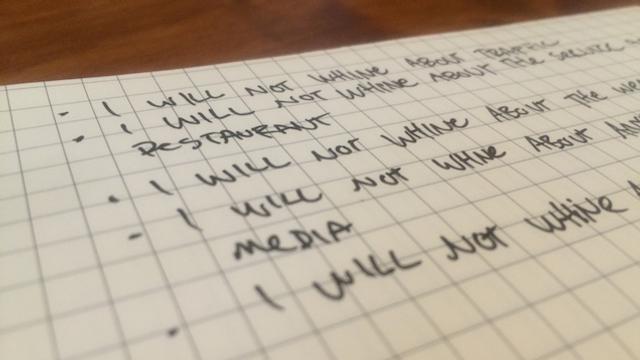 • I WILL NOT WHINE ABOUT TRAFFIC
• I WILL NOT WHINE ABOUT THE SERVICE
RESTAURANT
• I WILL NOT WHINE ABOUT THE
• I WILL NOT WHINE ABOUT
MEDIA
• I WILL NOT WHINE